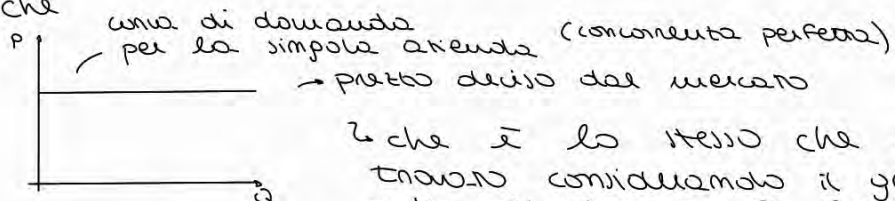 che
curva di domanda
per la singola azienda (concorrenza perfetta)
P
→ prezzo deciso dal mercato
↳ che è lo stesso che
trovo considerando il
Q